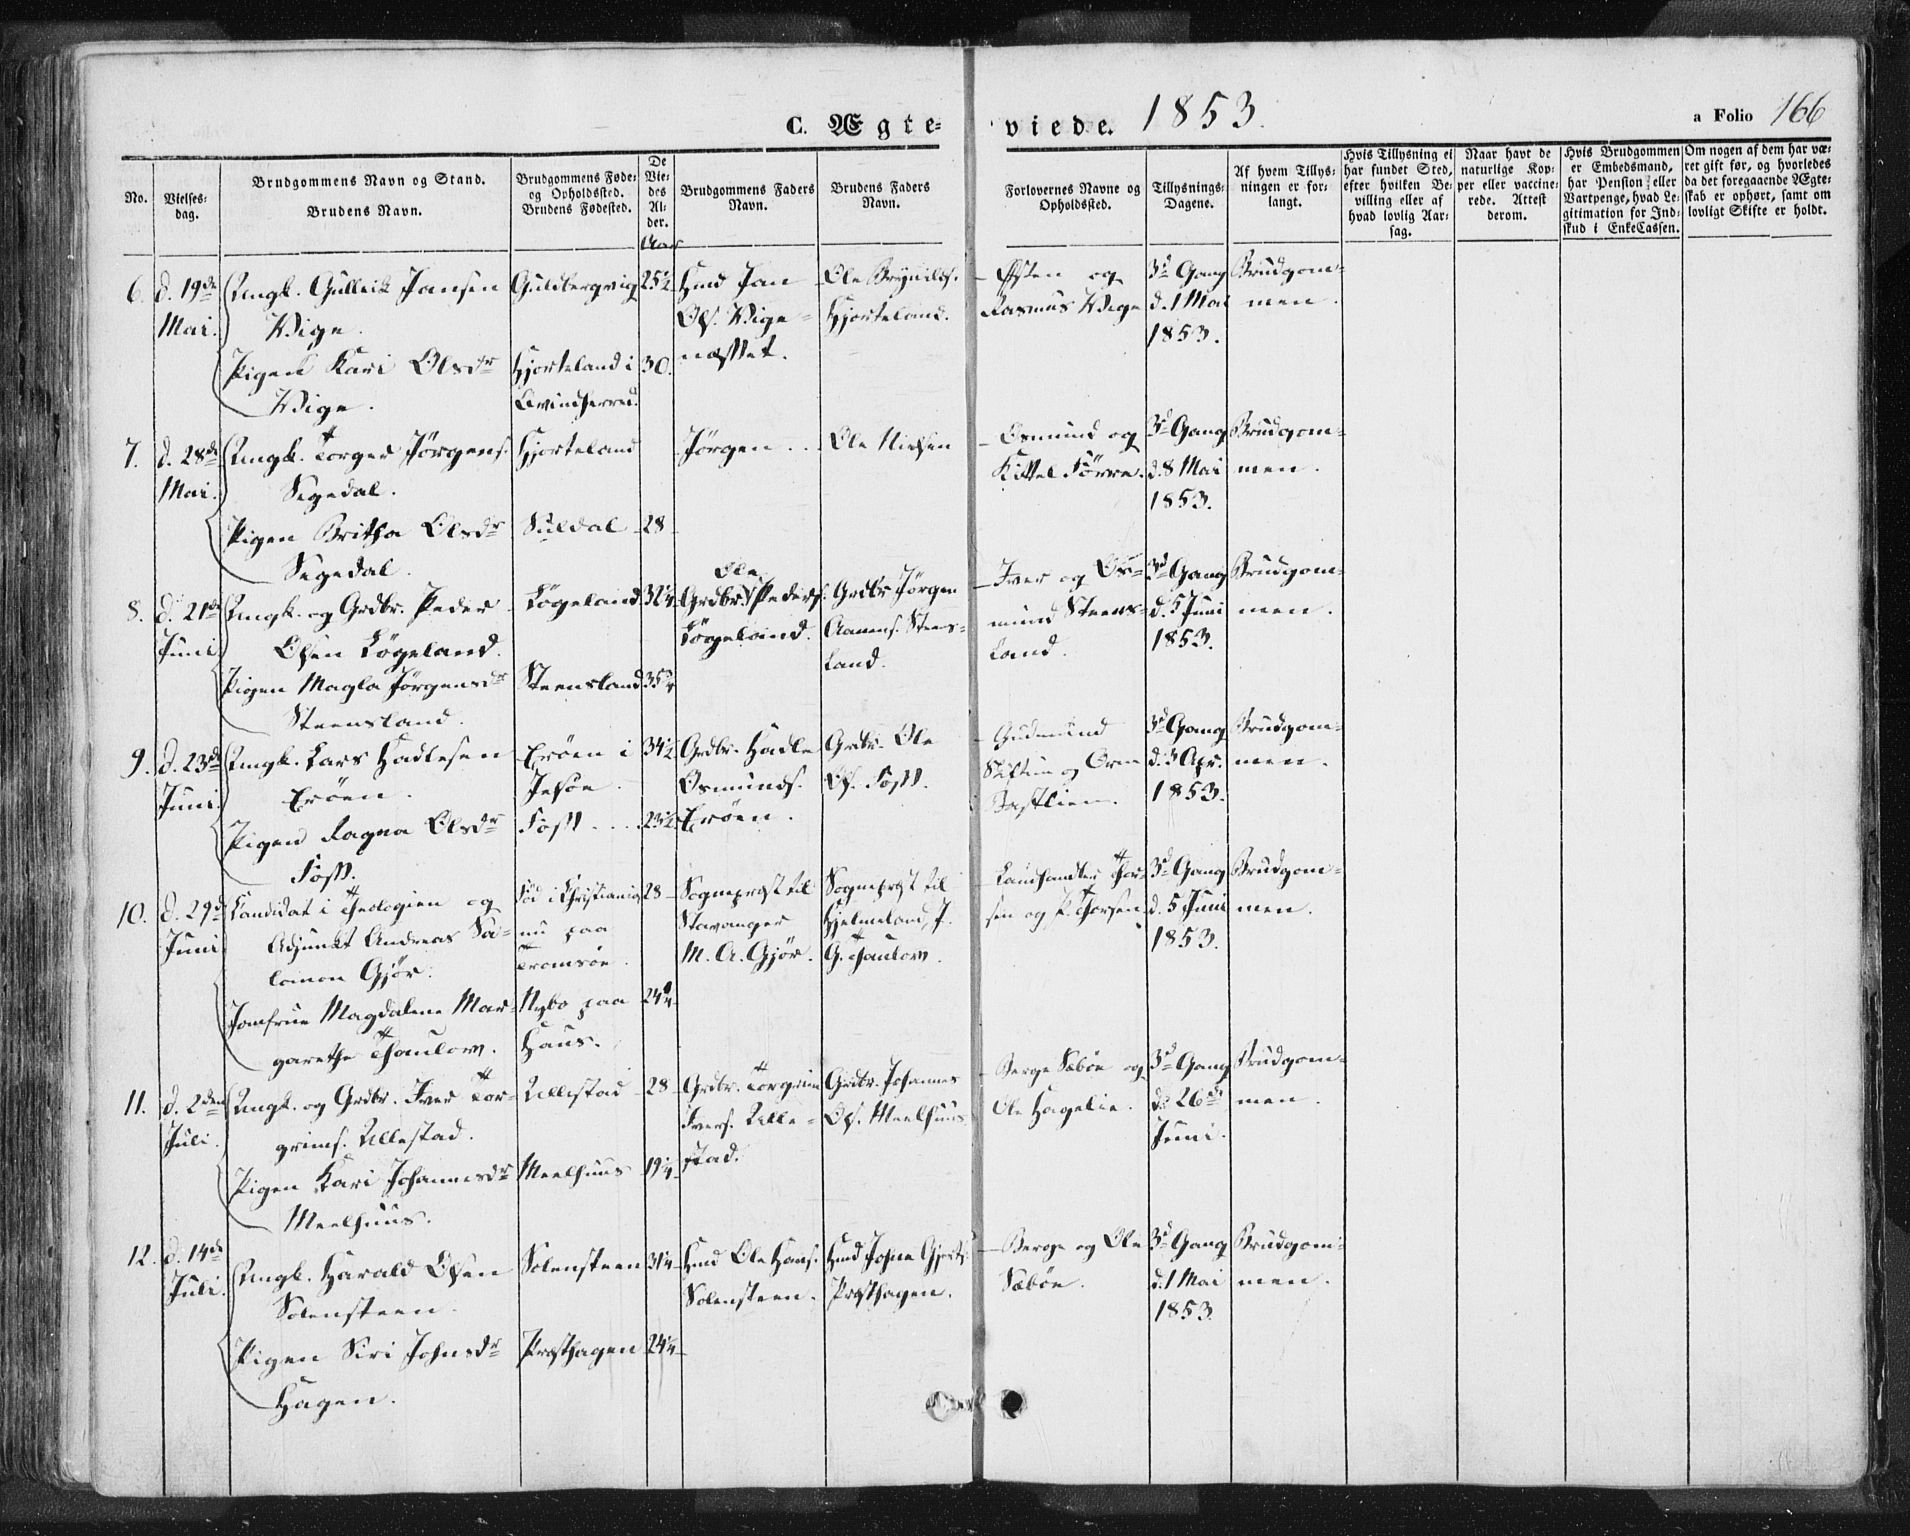 C. Ægte-
viede. 1853.
a Folio 166
No.
Vielses-
dag.
Brudgommens Navn og Stand.
Brudens Navn.
Brudgommens Føde-
og Opholdssted.
Brudens Fødested.
De
Vie-
des
Al-
der.
Aar
Brudgommens Faders
Navn.
Brudens Faders
Navn.
Forlovernes Navne og
Opholdssted.
Tillysnings-
Dagene.
Af hvem Tillys-
ningen er for-
langt.
Hvis Tillysning ei
har fundet Sted,
efter hvilken Be-
villing eller af
hvad lovlig Aar-
sag.
Naar havt de
naturlige Kop-
per eller vaccine-
rede. Attest
derom.
Hvis Brudgommen
er Embedsmand,
har Pension eller
Vartpenge, hvad Le-
gitimation for Ind-
skud i EnkeCassen.
Om nogen af dem har væ-
ret gift før, og hvorledes
da det foregaaende Ægte-
skab er ophørt, samt om
lovligt Skifte er holdt.
6.
d. 19de
Mai.
Ungk. Gulleik Jansen
Vige.
Pigen Kari Olsdr
Vige.
Guldbergvig
Hjorteland i
25½
30.
Hmd Jan
Ols. Vige-
næsset.
Ole Brynilds.
Hjorteland.
Østen og
Rasmus Vige
3d Gang
d. 1 Mai
1853.
Brudgom-
men.
7.
d. 28de
Mai.
Ungk. Torger Jørgens.
Segedal.
Pigen Britha Olsdr
Segedal.
Hjorteland
Suldal
28
Jørgen ...
Ole Nielsen
Osmund og
Kittel Førre.
3d Gang
d. 8 Mai
1853.
Brudgom-
men.
8.
d. 21de
Juni
Ungk. og Grdbr. Peder
Olsen Løgeland.
Pigen Magla Jørgensdr
Steensland.
Løgeland
Steensland
32¼
35¾
Ole
Grdbr. Peders.
Løgeland.
Grdbr Jørgen
Aanens. Steens-
land.
Iver og Os-
mund Steens-
land.
3d Gang
d. 5 Juni
1853.
Brudgom-
men.
9.
d. 23de
Juni
Ungk. Lars Hadlesen
Erøen.
Pigen Ragna Olsdr
Foss.
Erøen i
Jelsøe.
Foss ...
34½
23½
Grdbr. Hadle
Osmunds.
Erøen.
Grdbr. Ole
Ols. Foss.
Gudmund
og Orm
3d Gang
d. 3 Apr.
1853.
Brudgom-
men.
10.
d. 29de
Juni
Kandidat i Theologien og
Adjunkt Andreas Sa-
lomon Gjør.
Jomfrue Magdalene Mar-
garethe Thaulow.
Fød i Christiania
nu paa
Tromsøe.
Nybo paa
Haus.
28
24¾
Sogneprest til
Stavanger
M. A. Gjør.
Sogneprest til
Hjelmeland, J.
G. Thaulow.
Landhandler Thor-
sen og P. Thorsen
3d Gang
d. 5 Juni
1853.
Brudgom-
men.
11.
d. 2den
Juli.
Ungk. og Grdbr. Iver Tor-
grims. Ullestad.
Pigen Kari Johannesdr
Meelhuus.
Ullestad
Meelhuus
28
19¼
Grdbr. Torgrim
Ivers. Ulle-
stad.
Grdbr. Johannes
Ols. Meelhuus
Berge Sæbøe og
Ole Hagelie.
3d Gang
d. 26de
Juni.
Brudgom-
men.
12.
d. 14de
Juli.
Ungk. Harald Olsen
Solensteen.
Pigen Siri Johnsdr
Hagen.
Solensteen
Præsthagen
31¼
24¼
Hmd Ole Hans.
Solensteen.
Hmd John Gjerts.
Præsthagen.
Berge og Ole
Sæbøe.
3d Gang
d. 1 Mai
1853.
Brudgom-
men.